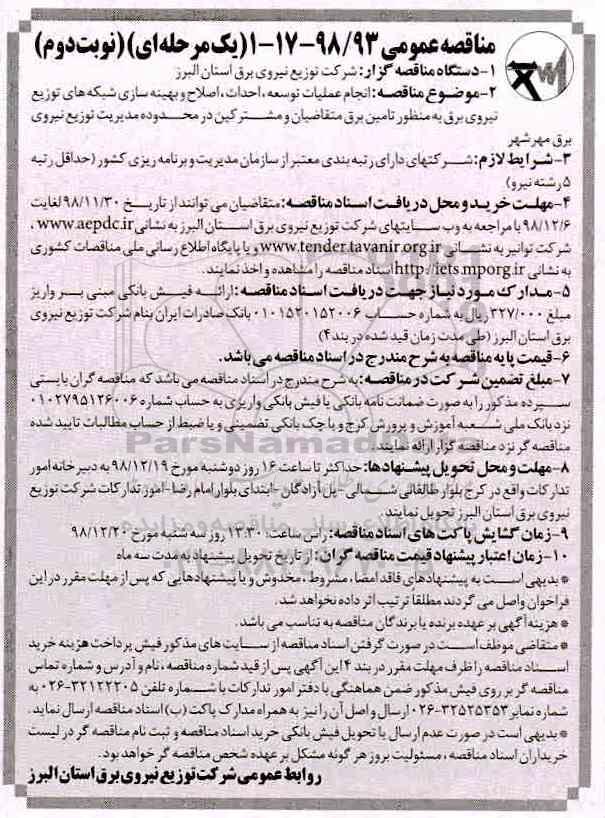 مناقصه عمومی ۹۸/۹۳-۱۷-۱ (یک مرحله‌ای) (نوبت دوم)
۱-دستگاه مناقصه گزار: شرکت توزیع نیروی برق استان البرز
۲-موضوع مناقصه: انجام عملیات توسعه، احداث، اصلاح و بهینه سازی شبکه های توزیع
نیروی برق به منظور تامین برق متقاضیان و مشترکین در محدوده مدیریت توزیع نیروی
برق مهرشهر
۳-شرایط لازم: شرکتهای دارای رتبه بندی معتبر از سازمان مدیریت و برنامه ریزی کشور (حداقل رتبه
۵ رشته نیرو)
۴-مهلت خرید و محل دریافت اسناد مناقصه: متقاضیان می توانند از تاریخ ۹۸/۱۱/۳۰ لغایت
۹۸/۱۲/۶ با مراجعه به وب سایتهای شرکت توزیع نیروی برق استان البرز به نشانی www.aepdc.ir ،
شرکت توانیر به نشانی www.tender.tavanir.org.ir و یا پایگاه اطلاع رسانی ملی مناقصات کشوری
به نشانی http://iets.mporg.ir اسناد مناقصه را مشاهده و اخذ نمایند.
۵-مدارک مورد نیاز جهت دریافت اسناد مناقصه: ارائه فیش بانکی مبنی بر واریز
مبلغ ۳۲۷/۰۰۰ ریال به شماره حساب ۰۱۰۱۵۲۰۱۵۲۰۰۶ بانک صادرات ایران بنام شرکت توزیع نیروی
برق استان البرز (طی مدت زمان قید شده در بند ۴)
۶-قیمت پایه مناقصه به شرح مندرج در اسناد مناقصه می باشد.
۷-مبلغ تضمین شرکت در مناقصه: به شرح مندرج در اسناد مناقصه می باشد که مناقصه گران بایستی
سپرده مذکور را به صورت ضمانت نامه بانکی یا فیش بانکی واریزی به حساب شماره ۰۱۰۲۷۹۵۱۲۶۰۰۶
نزد بانک ملی شعبه آموزش و پرورش کرج و یا چک بانکی تضمینی و یا ضبط از حساب مطالبات تایید شده
مناقصه گر نزد مناقصه گزار ارائه نمایند.
۸-مهلت و محل تحویل پیشنهادها: حداکثر تا ساعت ۱۶ روز دوشنبه مورخ ۹۸/۱۲/۱۹ به دبیرخانه امور
تدارکات واقع در کرج بلوار طالقانی شمالی -پل آزادگان -ابتدای بلوار امام رضا-امور تدارکات شرکت توزیع
نیروی برق استان البرز تحویل نمایند.
۹-زمان گشایش پاکت های اسناد مناقصه: راس ساعت ۱۳:۳۰ روز سه شنبه مورخ ۹۸/۱۲/۲۰
۱۰-زمان اعتبار پیشنهاد قیمت مناقصه گران: از تاریخ تحویل پیشنهاد به مدت سه ماه
* بدیهی است به پیشنهادهای فاقد امضا، مشروط، مخدوش و یا پیشنهادهایی که پس از مهلت مقرر در این
فراخوان واصل می گردند مطلقا ترتیب اثر داده نخواهد شد.
* هزینه آگهی بر عهده برنده یا برندگان مناقصه به تناسب می باشد.
* متقاضی موظف است در صورت گرفتن اسناد مناقصه از سایت های مذکور فیش پرداخت هزینه خرید
اسناد مناقصه را ظرف مهلت مقرر در بند ۴ این آگهی پس از قید شماره مناقصه، نام و آدرس و شماره تماس
مناقصه گر بر روی فیش مذکور ضمن هماهنگی با دفتر امور تدارکات با شماره تلفن ۳۲۱۲۲۲۰۵-۰۲۶ به
شماره نمابر ۳۲۵۲۵۳۵۳-۰۲۶ ارسال و اصل آن را نیز به همراه مدارک پاکت (ب) اسناد مناقصه ارسال نماید.
* بدیهی است در صورت عدم ارسال یا تحویل فیش بانکی خرید اسناد مناقصه و ثبت نام مناقصه گر در لیست
خریداران اسناد مناقصه، مسئولیت بروز هر گونه مشکل بر عهده شخص مناقصه گر خواهد بود.
روابط عمومی شرکت توزیع نیروی برق استان البرز